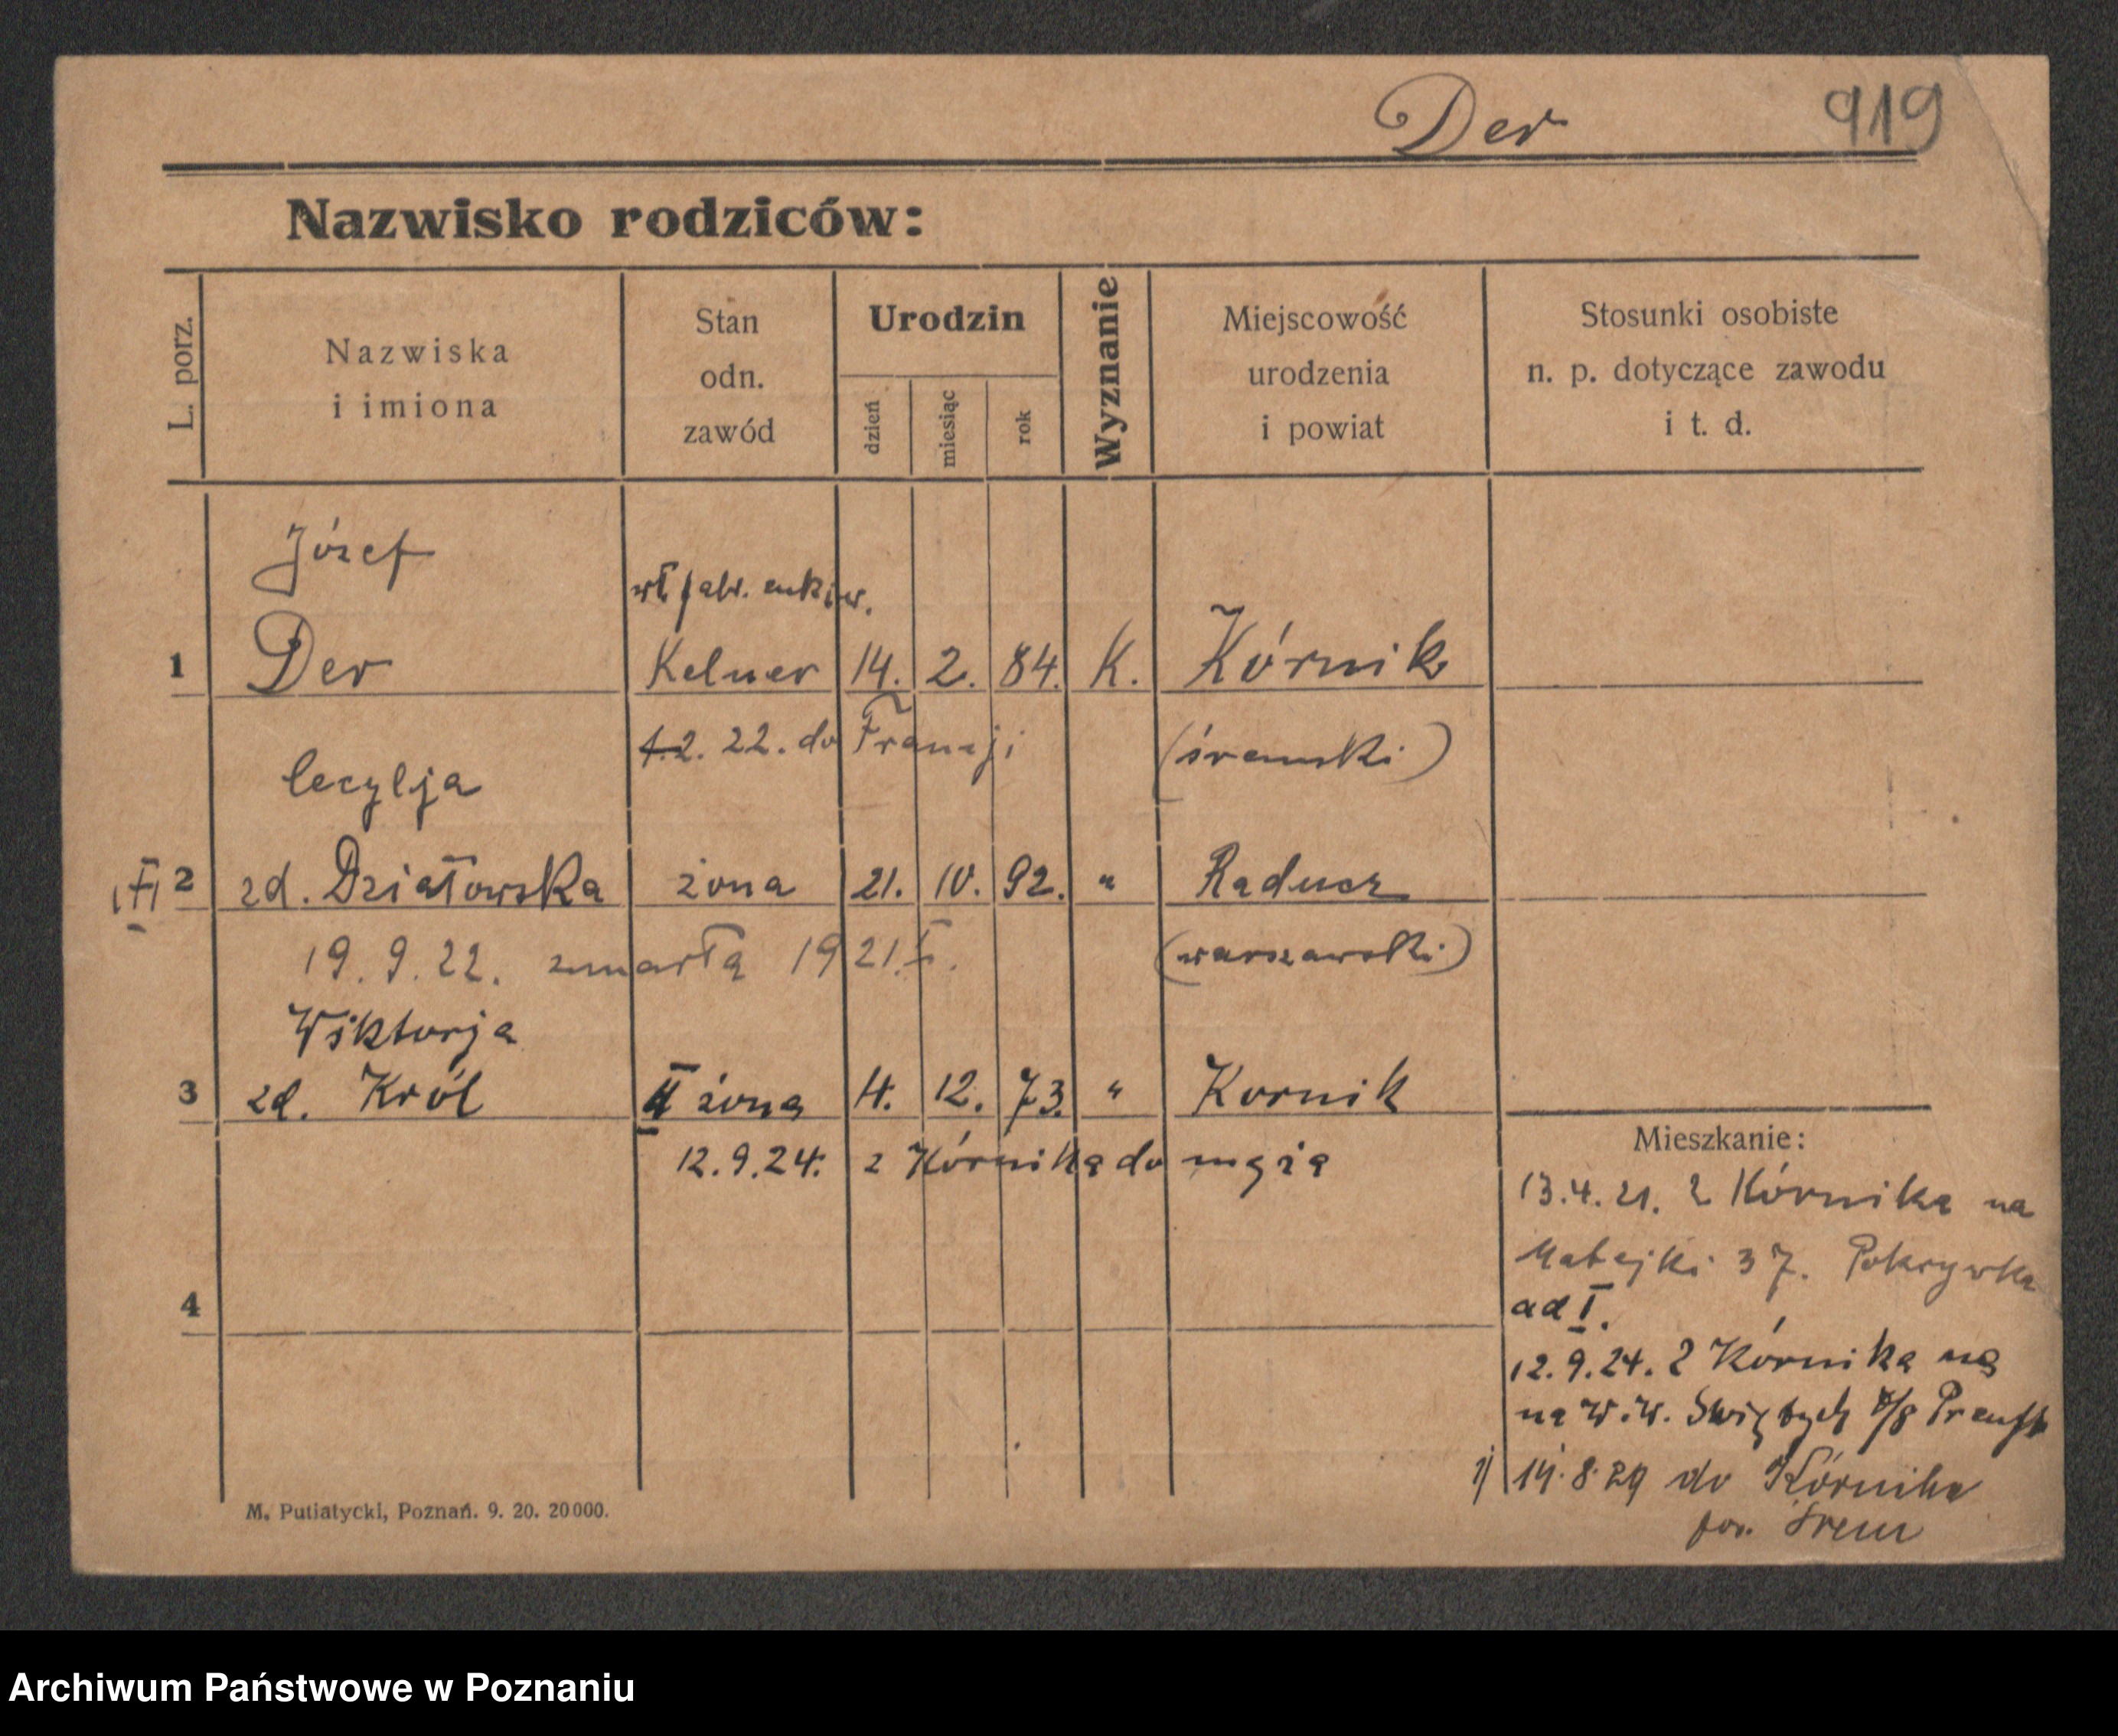 Der 919
Nazwisko rodziców:
L. porz.
Nazwiska
i imiona
Stan
odn.
zawód
Urodzin
dzień
miesiąc
rok
Wyznanie
Miejscowość
urodzenia
i powiat
Stosunki osobiste
n. p. dotyczące zawodu
i t. d.
Józef
wł. fabr. cukier.
1 Der Kelner 14. 2. 84. K. Kórnik
2. 22. do Francji (śremski)
Cecylja
2 zd. Działowska żona 21. 10. 92. "
19. 9. 22. zmarła 1921. (warszawski)
Wiktorja
3 zd. Król II żona 4. 12. 73. " Kornik
12. 9. 24. z Kórnika do męża
Mieszkanie:
13. 4. 21. z Kórnika na
Matejki 37. Pokrywka
4
ad I.
12. 9. 24. z Kórnika na
na W. W. Świętych
1) 14. 8. 29 do Kórnika
pow. Śrem
M. Putiatycki, Poznań. 9. 20. 20000.
Archiwum Państwowe w Poznaniu